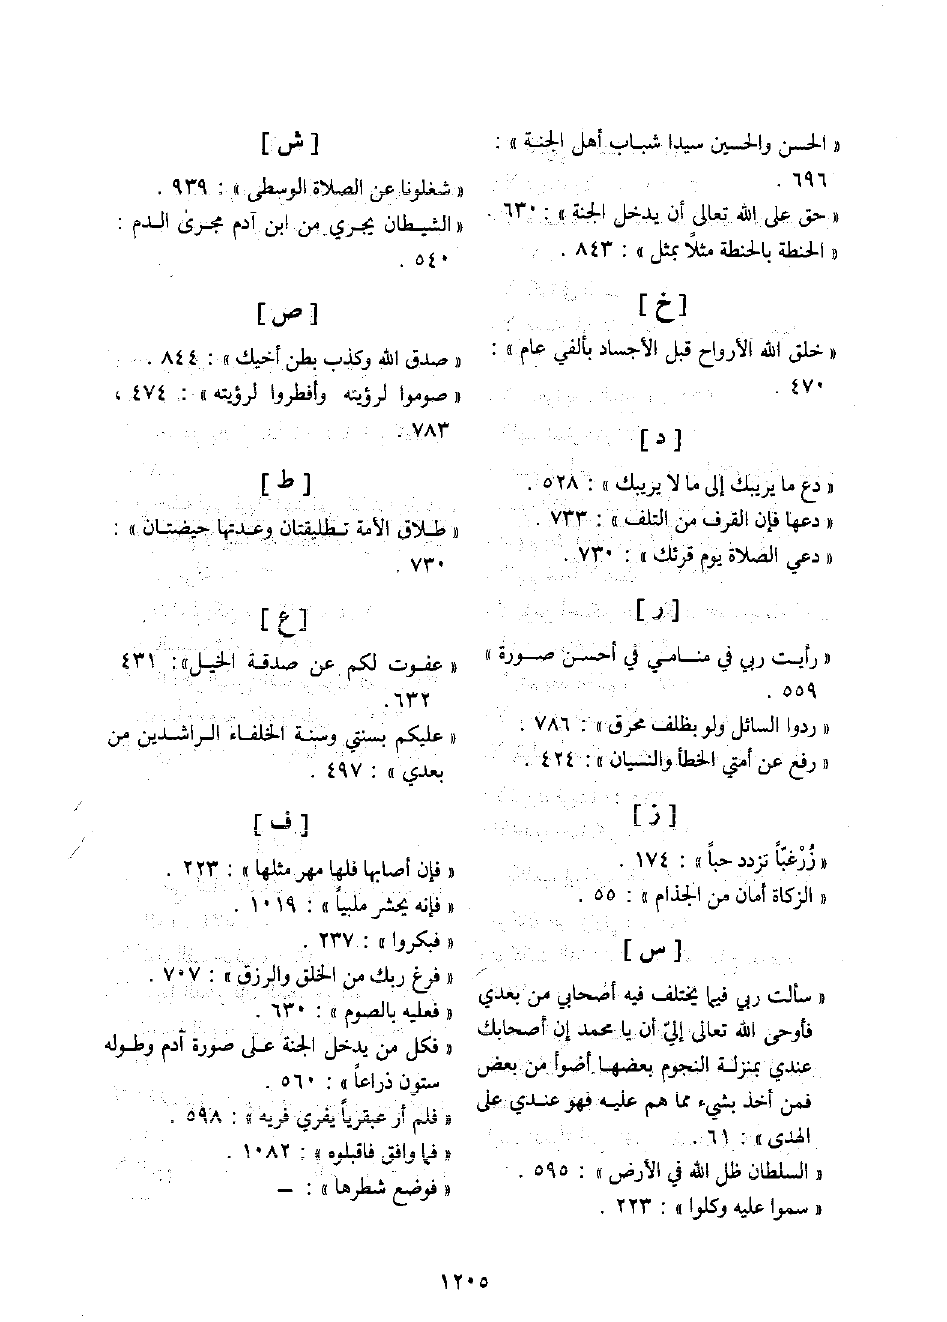 « الحسن والحسين سيدا شباب أهل الجنة » :
٦٩٦ .
« حق على الله تعالى أن يدخل الجنة » : ٦٣٠ .
« الحنطة بالحنطة مثلاً بمثل » : ٨٤٣ .
[ خ ]
« خلق الله الأرواح قبل الأجساد بألفي عام » :
٤٧٠ .
[ د ]
« دع ما يريبك إلى ما لا يريبك » : ٥٢٨ .
« دعها فإن القرف من التلف » : ٧٣٣ .
« دعي الصلاة يوم قرئك » : ٧٣٠ .
[ ر ]
« رأيت ربي في منامي في أحسن صورة »
٥٥٩ .
« ردوا السائل ولو بظلف محرق » : ٧٨٦ .
« رفع عن أمتي الخطأ والنسيان » : ٤٢٤ .
[ ز ]
« زُرْغبّاً تزدد حباً » : ١٧٤ .
« الزكاة أمان من الجذام » : ٥٥ .
[ س ]
« سألت ربي فيما يختلف فيه أصحابي من بعدي
فأوحى الله تعالى إليّ أن يا محمد إن أصحابك
عندي بمنزلة النجوم بعضها أضوأ من بعض
فمن أخذ بشيء مما هم عليه فهو عندي على
الهدى » : ٦١ .
« السلطان ظل الله في الأرض » : ٥٩٥ .
« سموا عليه وكلوا » : ٢٢٣ .
[ ش ]
« شغلونا عن الصلاة الوسطى » : ٩٣٩ .
« الشيطان يجري من ابن آدم مجرى الدم :
٥٤٠ .
[ ص ]
« صدق الله وكذب بطن أخيك » : ٨٤٤ .
« صوموا لرؤيته وأفطروا لرؤيته » : ٤٧٤ ،
٧٨٣ .
[ ط ]
« طلاق الأمة تطليقتان وعدتها حيضتان » :
٧٣٠ .
[ ع ]
« عفوت لكم عن صدقة الخيل» : ٤٣١
٦٣٢ .
« عليكم بسنتي وسنة الخلفاء الراشدين من
بعدي » : ٤٩٧ .
[ ف ]
« فإن أصابها فلها مهر مثلها » : ٢٢٣ .
« فإنه يحشر ملبياً » : ١٠١٩ .
« فبكروا » : ٢٣٧ .
« فرغ ربك من الخلق والرزق » : ٧٠٧ .
« فعليه بالصوم » : ٦٣٠ .
« فكل من يدخل الجنة على صورة آدم وطوله
ستون ذراعاً » : ٥٦٠ .
« فلم أر عبقرياً يفري فريه » : ٥٩٨ .
« فما وافق فاقبلوه » : ١٠٨٢ .
« فوضع شطرها » : –
١٢٠٥